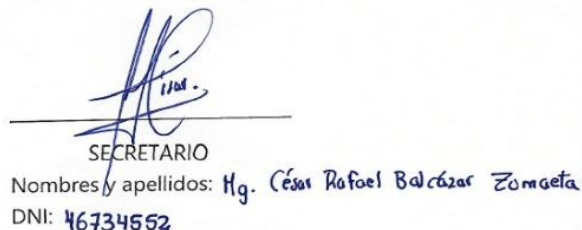 SECRETARIO
Nombres y apellidos: Mg. César Rafael Balcázar Zumaeta
DNI: 46734552